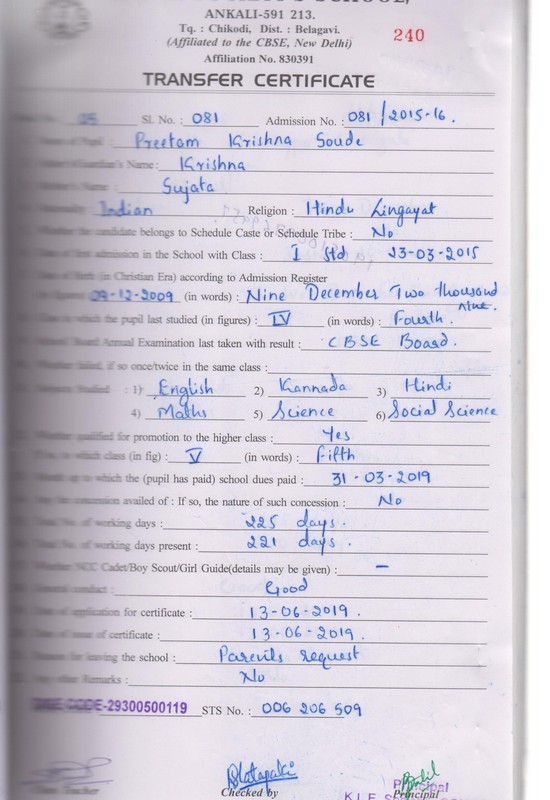 ANKALI-591 213.
Tq. : Chikodi, Dist. : Belagavi.
(Affiliated to the CBSE, New Delhi)
240
Affiliation No. 830391
TRANSFER CERTIFICATE
25 Sl. No. : 081 Admission No. : 081/2015-16.
Preetam Krishna Soude
Name : Krishna
Name : Sujata
Indian Religion : Hindu Lingayat
candidate belongs to Schedule Caste or Schedule Tribe : No
first admission in the School with Class : I Std 23-03-2015
(in Christian Era) according to Admission Register
09-12-2009 (in words) : Nine December Two thousand nine.
in which the pupil last studied (in figures) : IV (in words) : Fourth.
Board Annual Examination last taken with result : CBSE Board.
failed, if so once/twice in the same class :
Studied : 1) English 2) Kannada 3) Hindi
4) Maths 5) Science 6) Social Science
qualified for promotion to the higher class : Yes
which class (in fig) : V (in words) : Fifth
up to which the (pupil has paid) school dues paid : 31-03-2019
concession availed of : If so, the nature of such concession : No
No. of working days : 225 days.
No. of working days present : 221 days.
NCC Cadet/Boy Scout/Girl Guide(details may be given) : –
conduct : Good
of application for certificate : 13-06-2019.
of issue of certificate : 13-06-2019.
for leaving the school : Parents request
Any other Remarks : No
CODE-29300500119 STS No. : 006 206 509
Teacher
Checked by
Principal
Principal